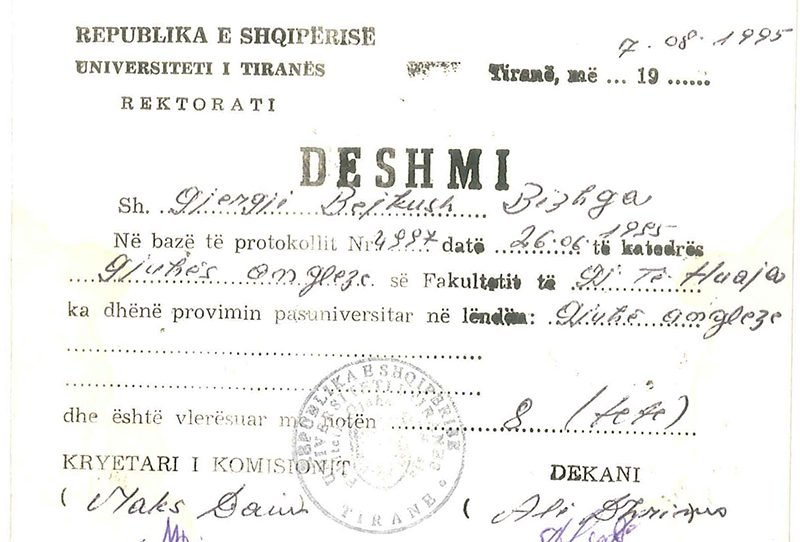 REPUBLIKA E SHQIPËRISË
UNIVERSITETI I TIRANËS
REKTORATI
7.08.1995
Tiranë, më ... 19 ......
DESHMI
Sh. Gjergji Bejkush Bizhga
Në bazë të protokollit Nr 4997 datë 26.06 1995 të katedrës
Gjuhës angleze së Fakultetit të Gj Të Huaja
ka dhënë provimin pasuniversitar në lëndën: Gjuhë angleze
dhe është vlerësuar me notën 8 (tetë)
KRYETARI I KOMISIONIT
DEKANI
( Maks
( Ali
REPUBLIKA E SHQIPERISE
TIRANE